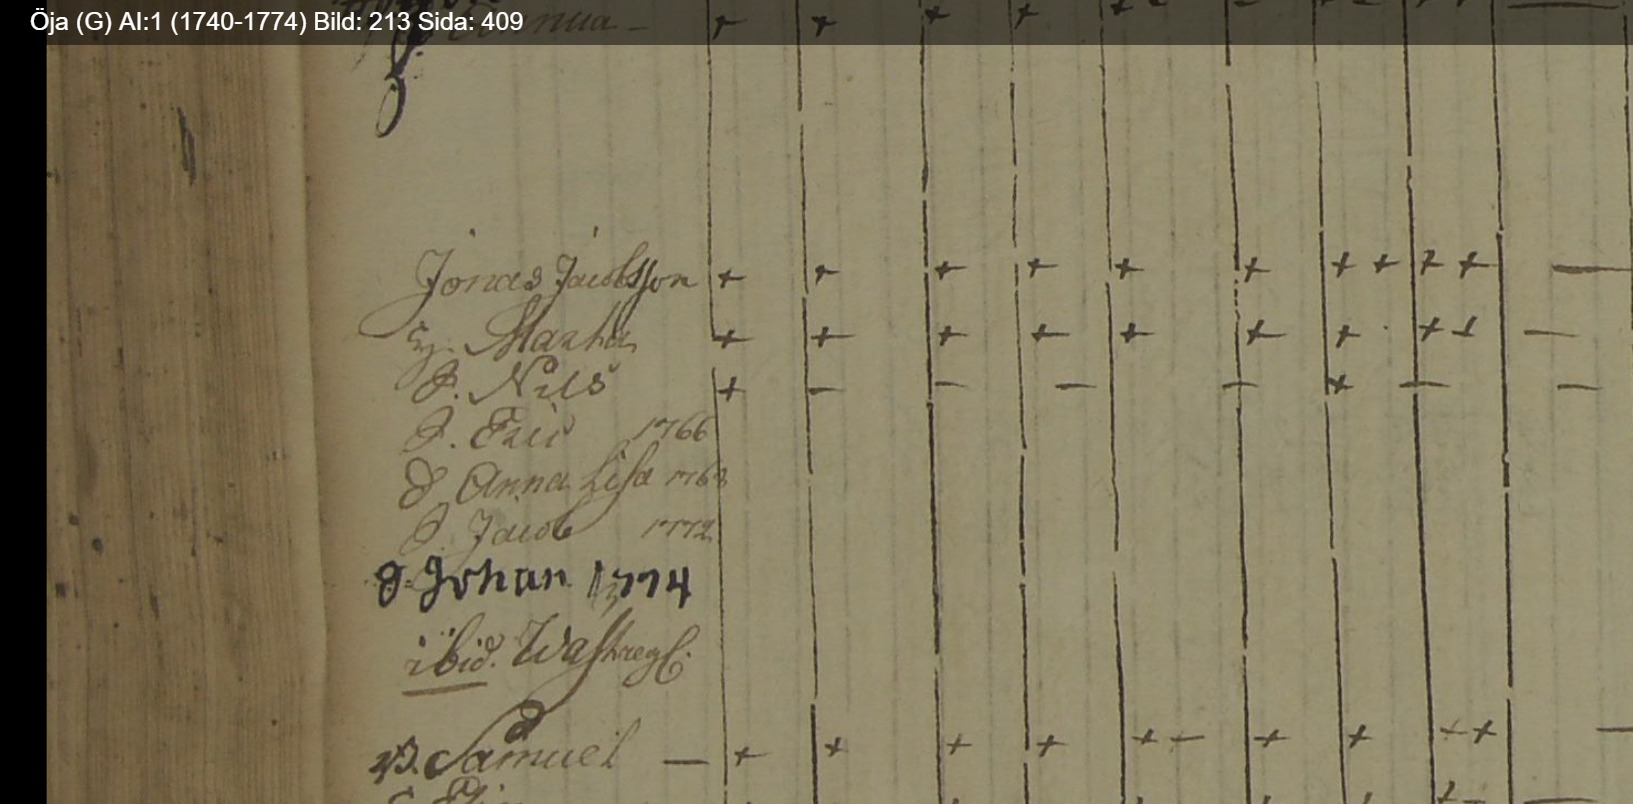 Öja (G) AI:1 (1740-1774) Bild: 213 Sida: 409
Jonas Jacobsson + + + + + + + + + + —
Martha + + + + + + + + + —
S. Nils + — — — — + — —
S. Eric 1766
d. Anna Lisa 1768
S. Jacob 1772
S. Johan 1774
ibid.
Samuel — + + + + + — + + + + —